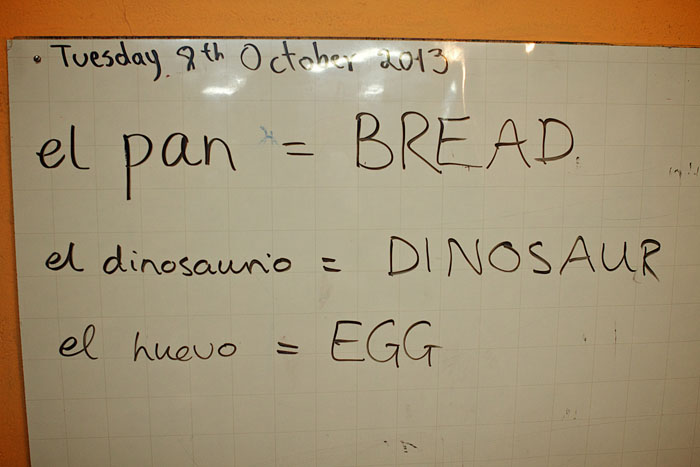 • Tuesday 8th October 2013
el pan = BREAD.
el dinosaurio = DINOSAUR
el huevo = EGG